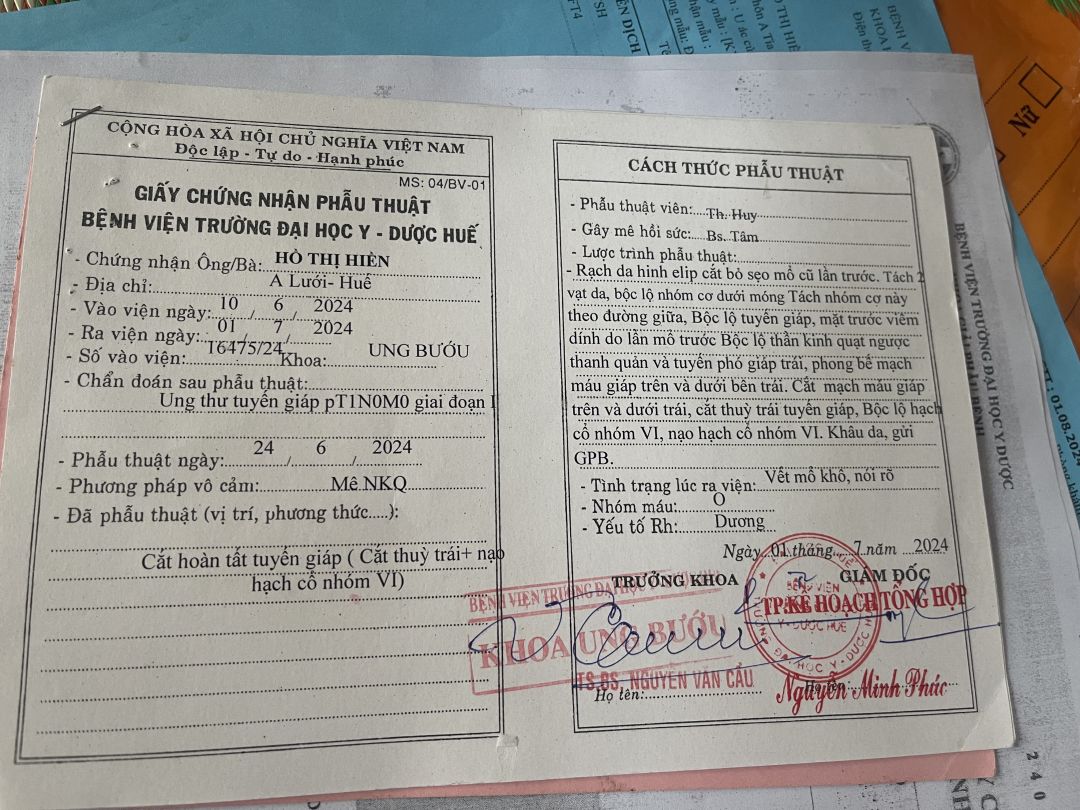 CỘNG HÒA XÃ HỘI CHỦ NGHĨA VIỆT NAM
Độc lập - Tự do - Hạnh phúc
MS: 04/BV-01
GIẤY CHỨNG NHẬN PHẪU THUẬT
BỆNH VIỆN TRƯỜNG ĐẠI HỌC Y - DƯỢC HUẾ
- Chứng nhận Ông/Bà: HỒ THỊ HIỀN
- Địa chỉ: A Lưới- Huế
- Vào viện ngày: 10 / 6 / 2024
- Ra viện ngày: 01 / 7 / 2024
- Số vào viện: 16475/24 Khoa: UNG BƯỚU
- Chẩn đoán sau phẫu thuật:
Ung thư tuyến giáp pT1N0M0 giai đoạn I
- Phẫu thuật ngày: 24 / 6 / 2024
- Phương pháp vô cảm: Mê NKQ
- Đã phẫu thuật (vị trí, phương thức.....):
Cắt hoàn tất tuyến giáp ( Cắt thuỳ trái+ nạo
hạch cổ nhóm VI)
CÁCH THỨC PHẪU THUẬT
- Phẫu thuật viên: Th. Huy
- Gây mê hồi sức: Bs. Tâm
- Lược trình phẫu thuật:
- Rạch da hình elip cắt bỏ sẹo mổ cũ lần trước. Tách 2
vạt da, bộc lộ nhóm cơ dưới móng Tách nhóm cơ này
theo đường giữa, Bộc lộ tuyến giáp, mặt trước viêm
dính do lần mổ trước Bộc lộ thần kinh quặt ngược
thanh quản và tuyến phó giáp trái, phong bế mạch
máu giáp trên và dưới bên trái. Cắt mạch máu giáp
trên và dưới trái, cắt thuỳ trái tuyến giáp, Bộc lộ hạch
cổ nhóm VI, nạo hạch cổ nhóm VI. Khâu da, gửi
GPB.
- Tình trạng lúc ra viện: Vết mổ khô, nói rõ
- Nhóm máu: O
- Yếu tố Rh: Dương
Ngày 01 tháng 7 năm 2024
TRƯỞNG KHOA
GIÁM ĐỐC
BỆNH VIỆN TRƯỜNG ĐẠI HỌC Y
KHOA UNG BƯỚU
TS.BS. NGUYỄN VĂN CẦU
Họ tên:
BỆNH VIỆN
Y - DƯỢC HUẾ
TP.KẾ HOẠCH TỔNG HỢP
Họ tên:
Nguyễn Minh Phúc
Nữ
BỆNH VIỆN TRƯỜNG ĐẠI HỌC Y DƯỢC
01.08.2024